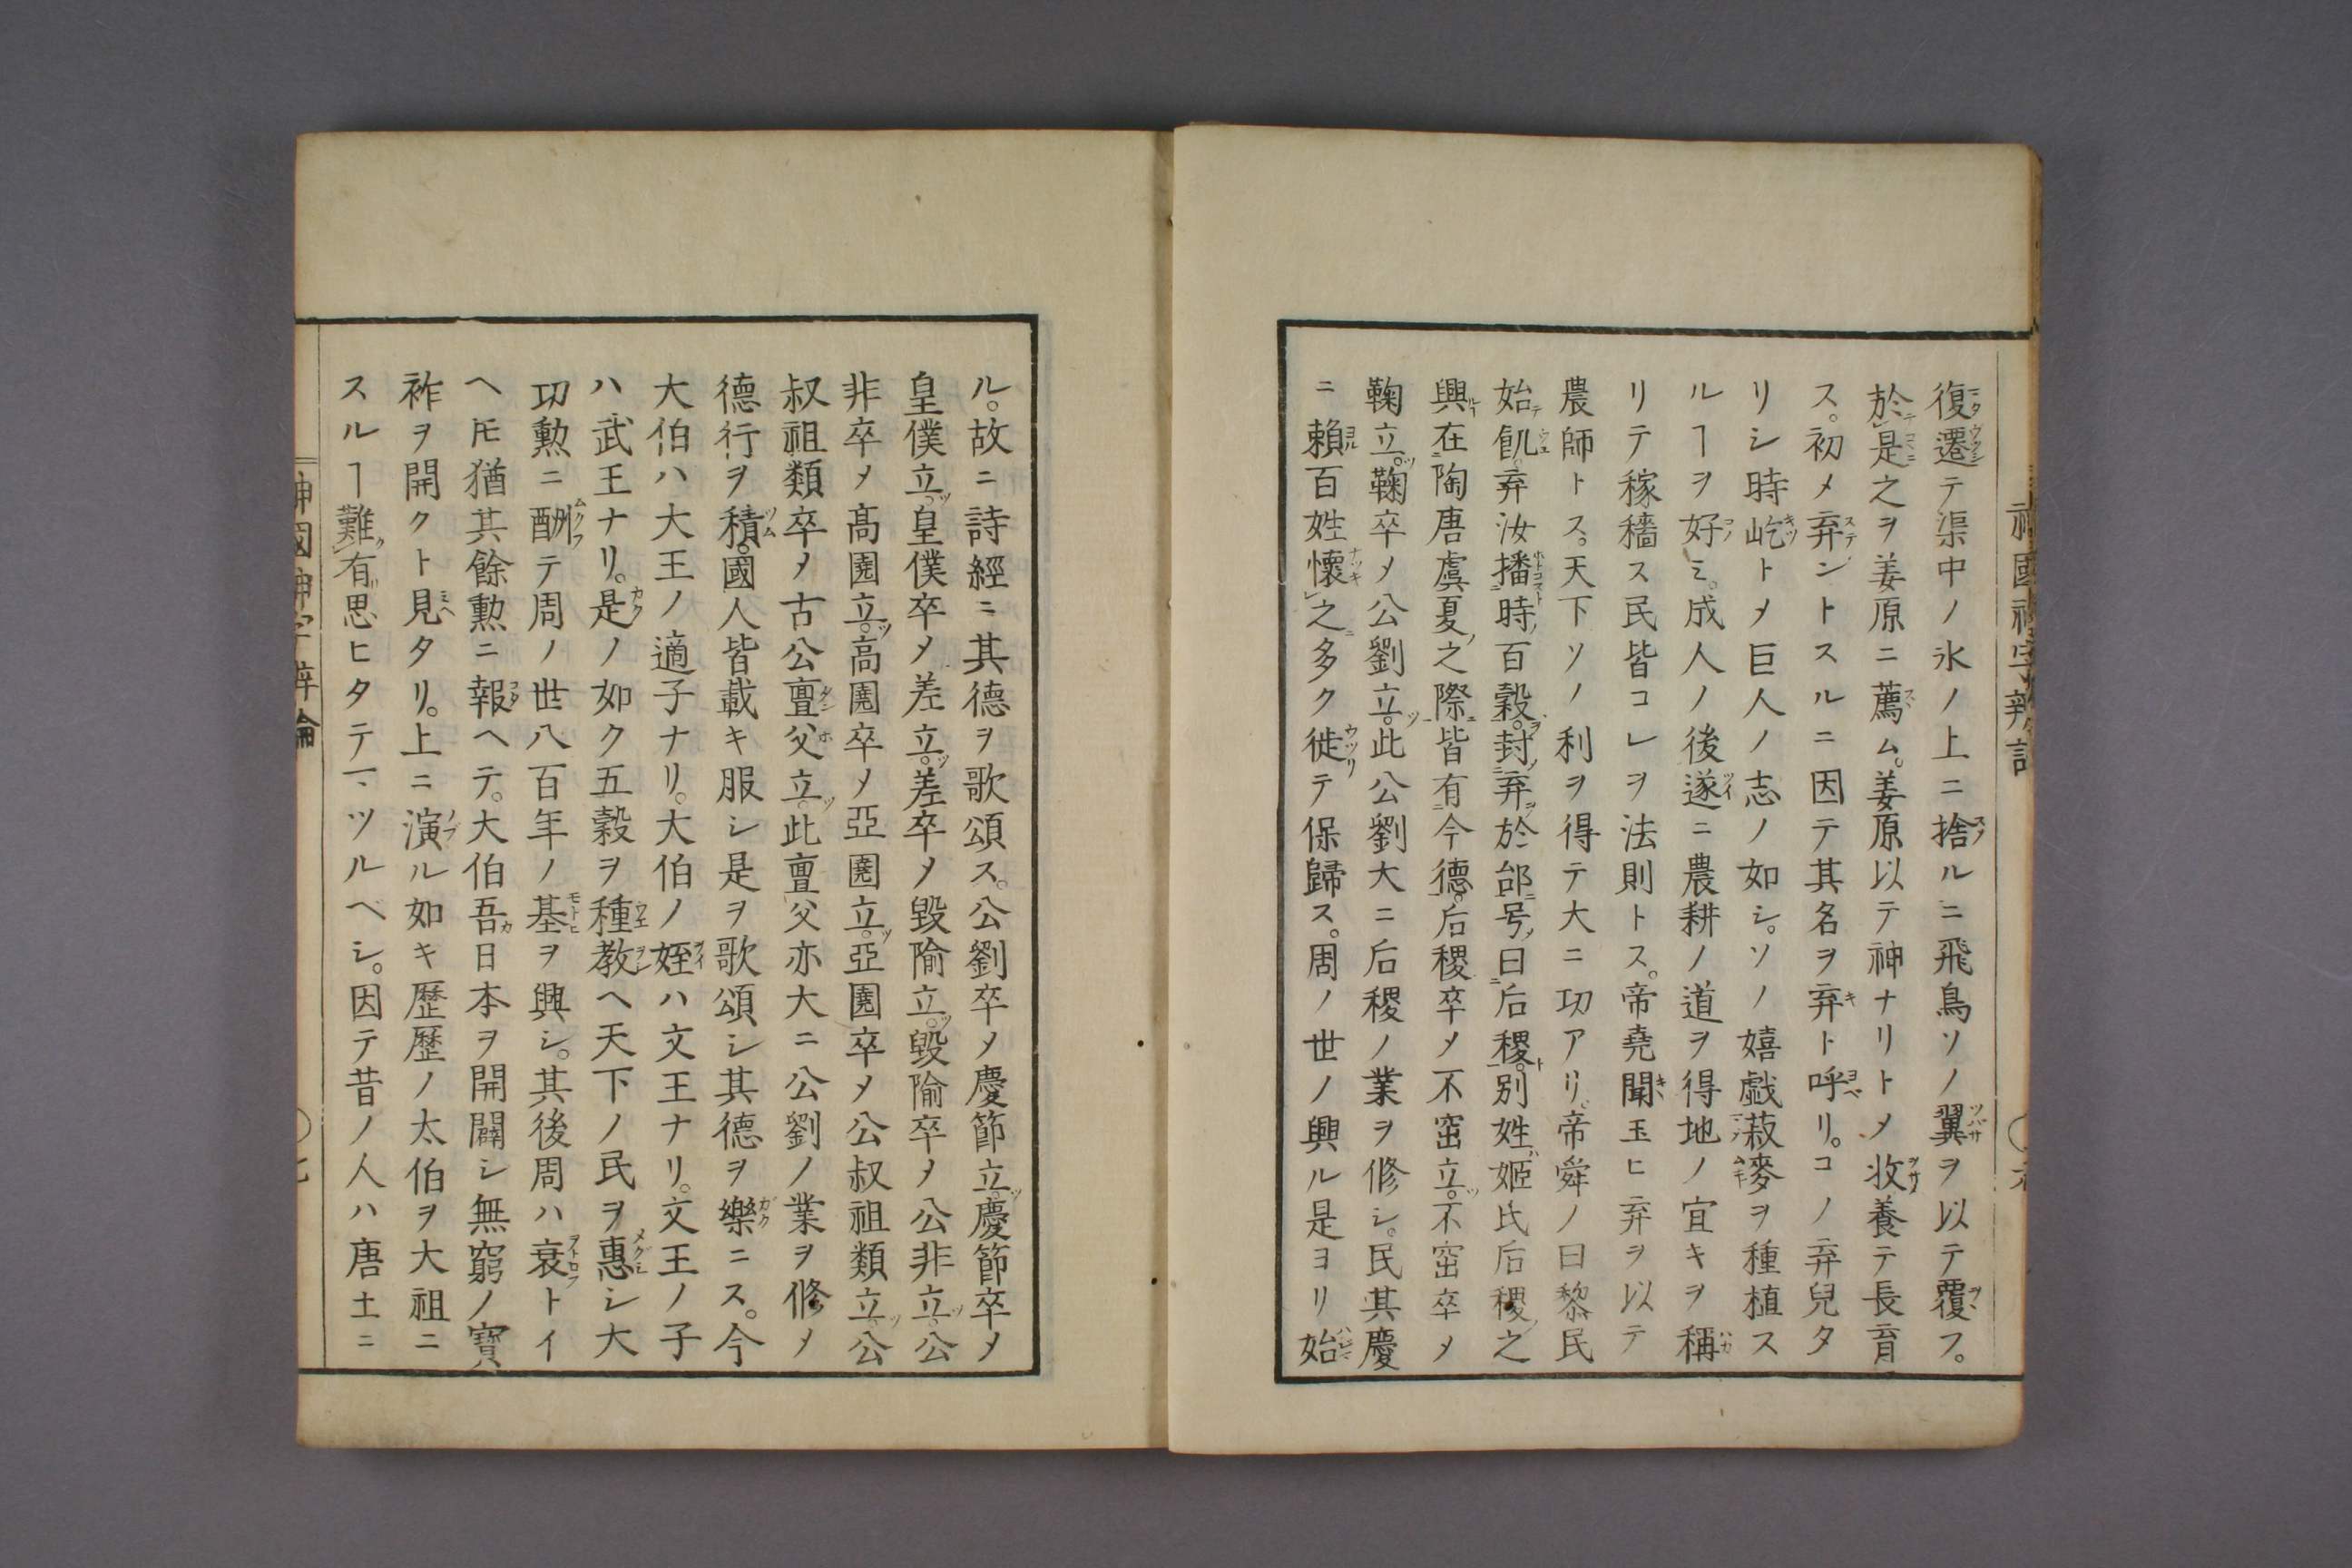 復遷テ渠中ノ氷ノ上ニ捨ルニ飛鳥ソノ翼ヲ以テ覆フ。
於是之ヲ姜原ニ薦ム。姜原以テ神ナリトメ收養テ長育
ス。初メ弃ントスルニ因テ其名ヲ弃ト呼リ。コノ弃兒タ
リシ時屹トメ巨人ノ志ノ如シ。ソノ嬉戯菽麥ヲ種植ス
ルヿヲ好ミ。成人ノ後遂ニ農耕ノ道ヲ得地ノ宜キヲ稱
リテ稼穡ス民皆コレヲ法則トス。帝堯聞玉ヒ弃ヲ以テ
農師トス。天下ソノ利ヲ得テ大ニ功アリ。帝舜ノ曰黎民
始飢。弃汝播時百穀。封弃於邰号曰后稷。別姓姬氏后稷之
興在陶唐虞夏之際皆有令德。后稷卒メ不窋立。不窋卒メ
鞠立。鞠卒メ公劉立。此公劉大ニ后稷ノ業ヲ修シ。民其慶
ニ賴百姓懷之多ク徙テ保歸ス。周ノ世ノ興ル是ヨリ始
ル。故ニ詩經ニ其德ヲ歌頌ス。公劉卒メ慶節立。慶節卒メ
皇僕立。皇僕卒メ差立。差卒メ毀隃立。毀隃卒メ公非立。公
非卒メ高圉立。高圉卒メ亞圉立。亞圉卒メ公叔祖類立。公
叔祖類卒メ古公亶父立。此亶父亦大ニ公劉ノ業ヲ修メ
德行ヲ積。國人皆載キ服シ是ヲ歌頌シ其德ヲ樂ニス。今
大伯ハ大王ノ適子ナリ。大伯ノ姪ハ文王ナリ。文王ノ子
ハ武王ナリ。是ノ如ク五穀ヲ種教ヘ天下ノ民ヲ惠シ大
功勲ニ酬テ周ノ世八百年ノ基ヲ興シ。其後周ハ衰トイ
ヘ𪜈猶其餘勲ニ報ヘテ。大伯吾日本ヲ開闢シ無窮ノ寶
祚ヲ開クト見タリ。上ニ演ル如キ歷歷ノ太伯ヲ大祖ニ
スルヿ難有思ヒタテマツルベシ。因テ昔ノ人ハ唐土ニ
神國神字辨論